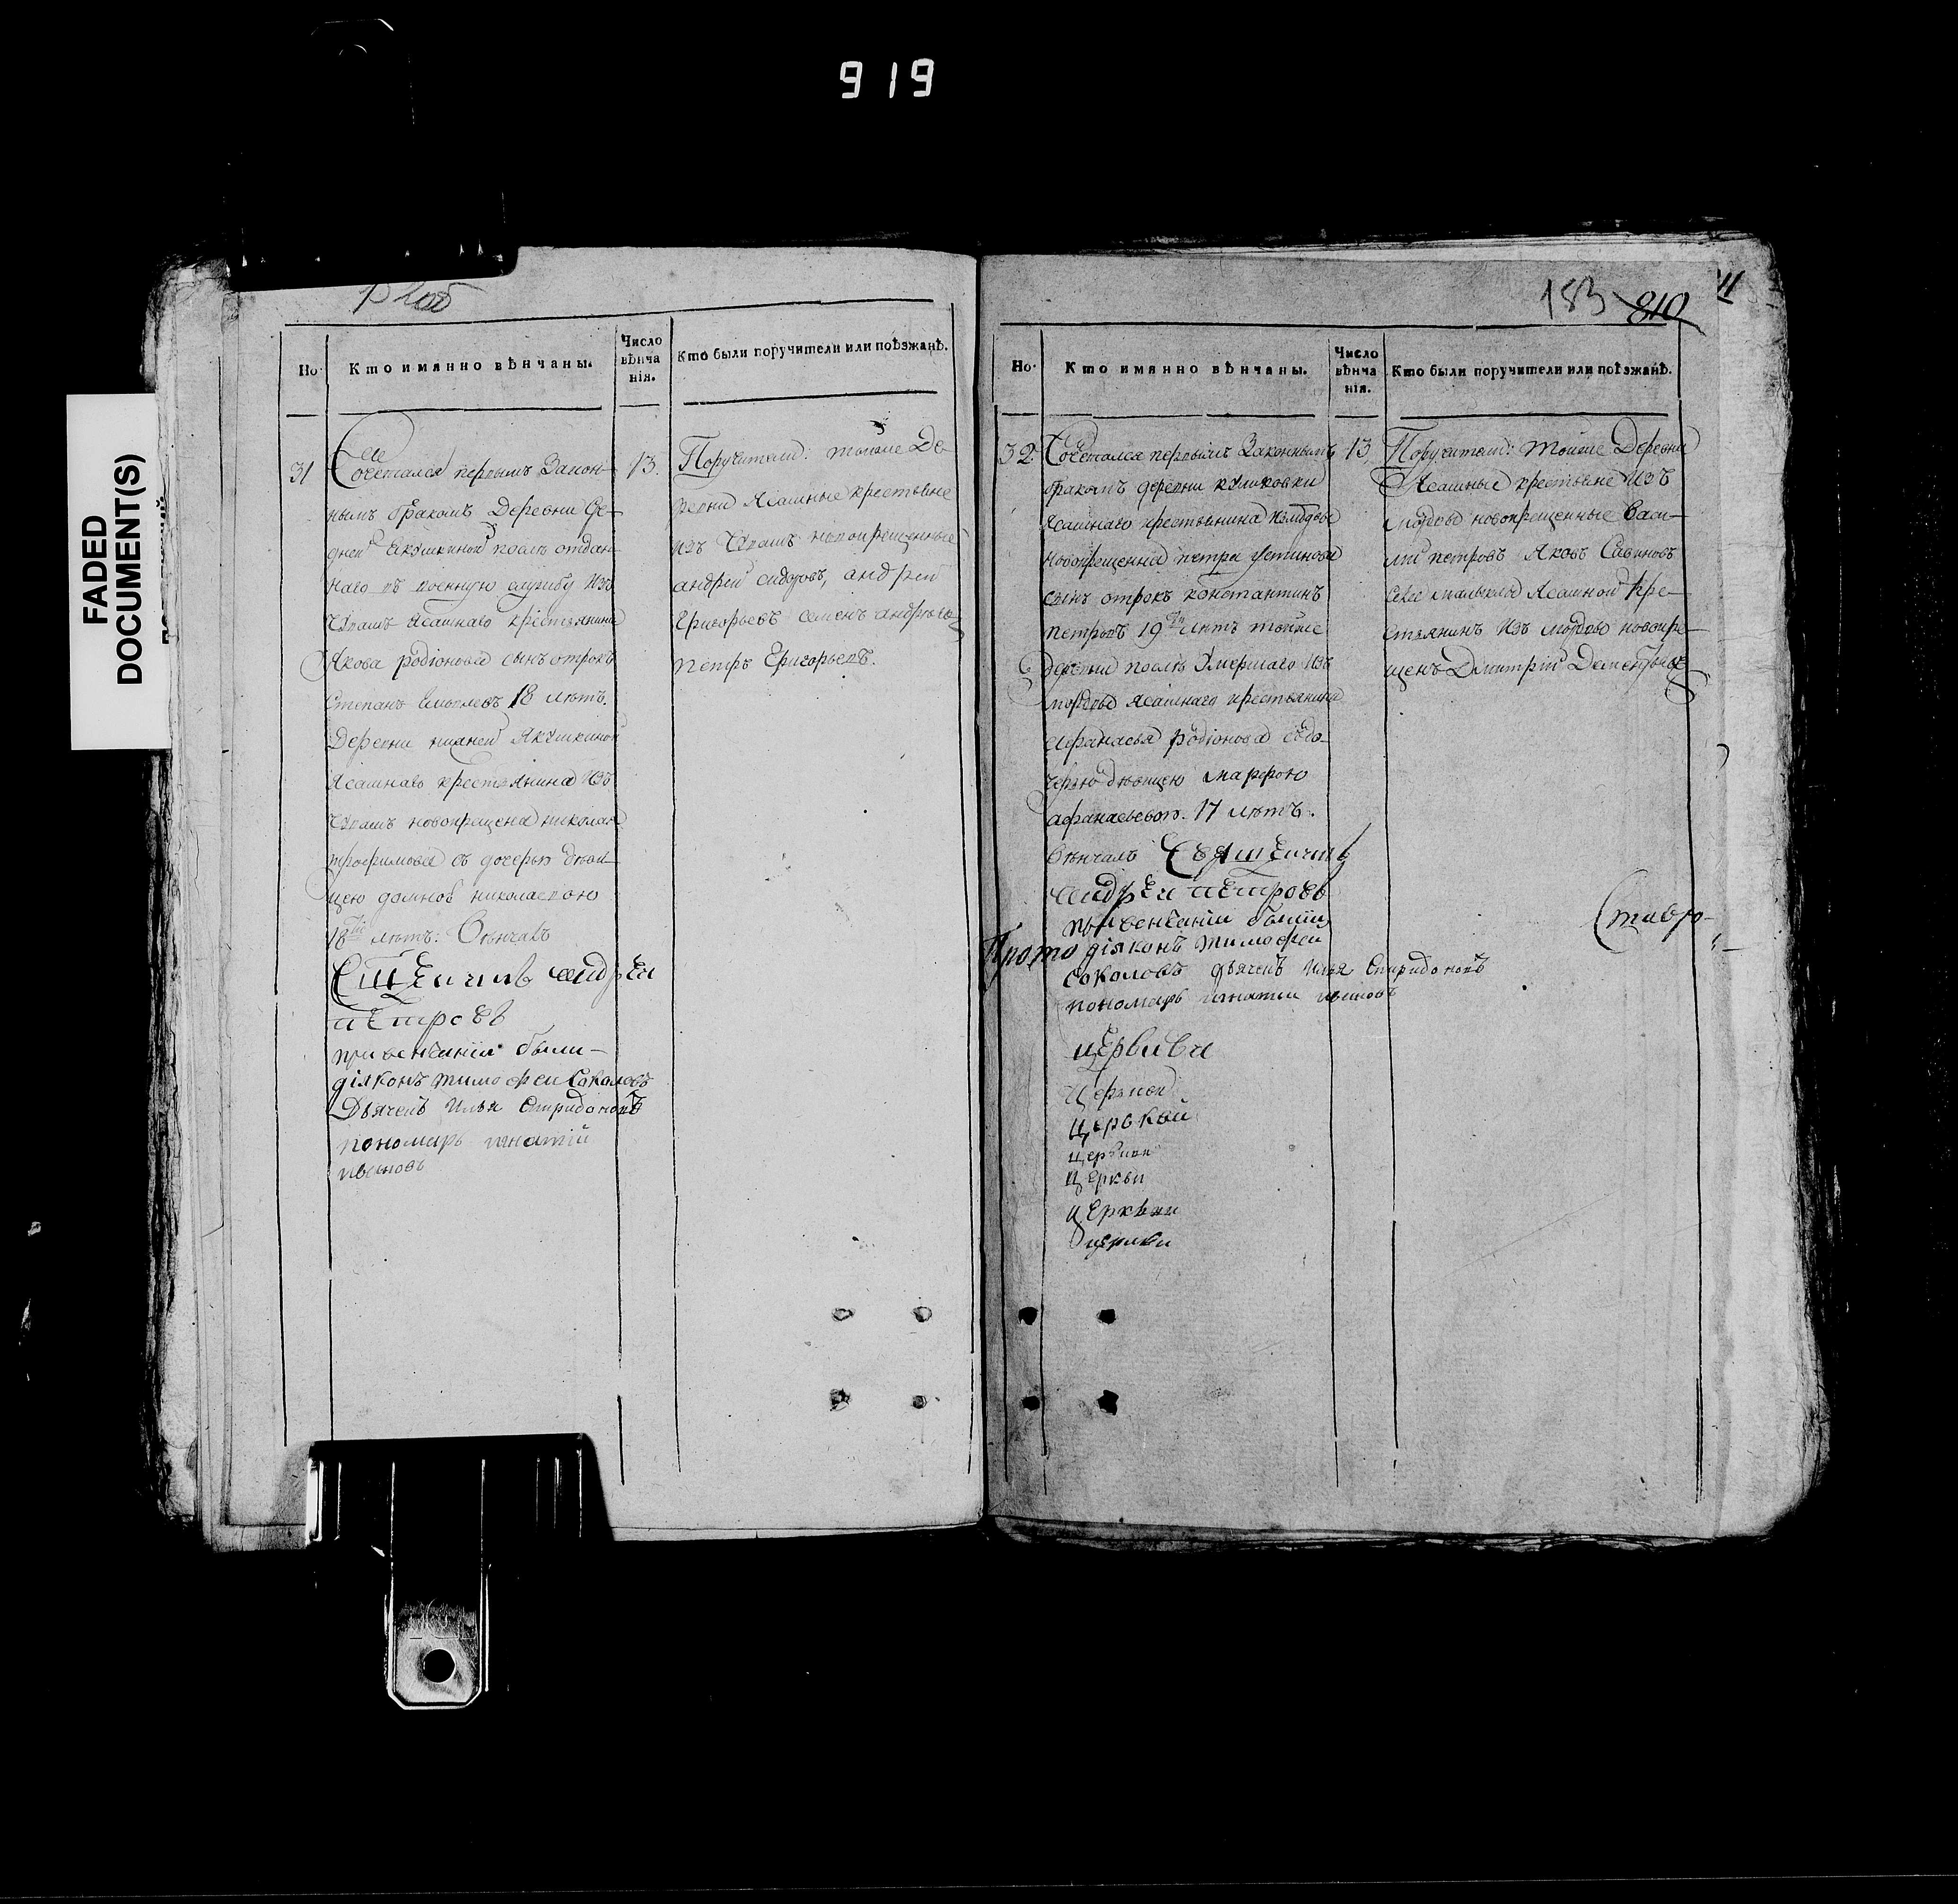 919
FADED
DOCUMENT(S)
183 810
Но. Кто имянно вѣнчаны. Число вѣнча нія. Кто были поручители или поѣзжанѣ.
31
Сочетался первымъ Закон-
нымъ бракомъ Деревни Сре-
дней Якушкиной послѣ отдан-
наго въ военную службу Изъ
Чувашъ Ясашнаго крестьянина
Якова родіонова сынъ отрокъ
Степанъ 18 лѣтъ.
Деревни нижней Якушкиной
Ясашнаго крестьянина Изъ
Чувашъ новокрещена николая
трофимова съ дочерью дѣви-
цею домною николаевою
18 лѣтъ: Вѣнчалъ
Сщенникъ андрей
петровъ
при венчаніи были
діяконъ тимофеи Соколовъ
Дьячекъ Илья Спиридоновъ
пономарь игнатій
ивановъ
13.
Поручители: тойже Де-
ревни Ясашные крестьяне
изъ Чувашъ новокрещенные
андрей сидоровъ, андрей
Григорьевъ семенъ андреевъ
петръ Григорьевъ.
Но. Кто имянно вѣнчаны. Число вѣнча нія. Кто были поручители или поѣзжанѣ.
32.
Сочетался первымъ Законнымъ
бракомъ деревни куликовки
Ясашнаго крестьянина Измордвы
новокрещена петра устинова
сынъ отрокъ константинъ
петровъ 19 лѣтъ тойже
деревни послѣ Умершаго Изъ
мордвы ясашнаго крестьянина
Афанасья родіонова съдо-
черью дѣвицею марфою
афанасьевою. 17 лѣтъ.
Вѣнчалъ Священникъ
андрей петровъ
привенчаніи были
Прото діяконъ тимофеи
соколовъ дьячекъ Илья Спиридоновъ
пономарь игнатіи ивановъ
церкви
церькви
церкви
церкви
13.
Поручители: Тойже Деревни
Ясашные крестьяне Изъ
мордвы новокрещенные Васи-
лій петровъ Яковъ Савиновъ
Села малыклы Ясашной Кре-
стьянинъ Изъ мордвы новокре-
щенъ Дмитрій Дементьевъ
Ставро-